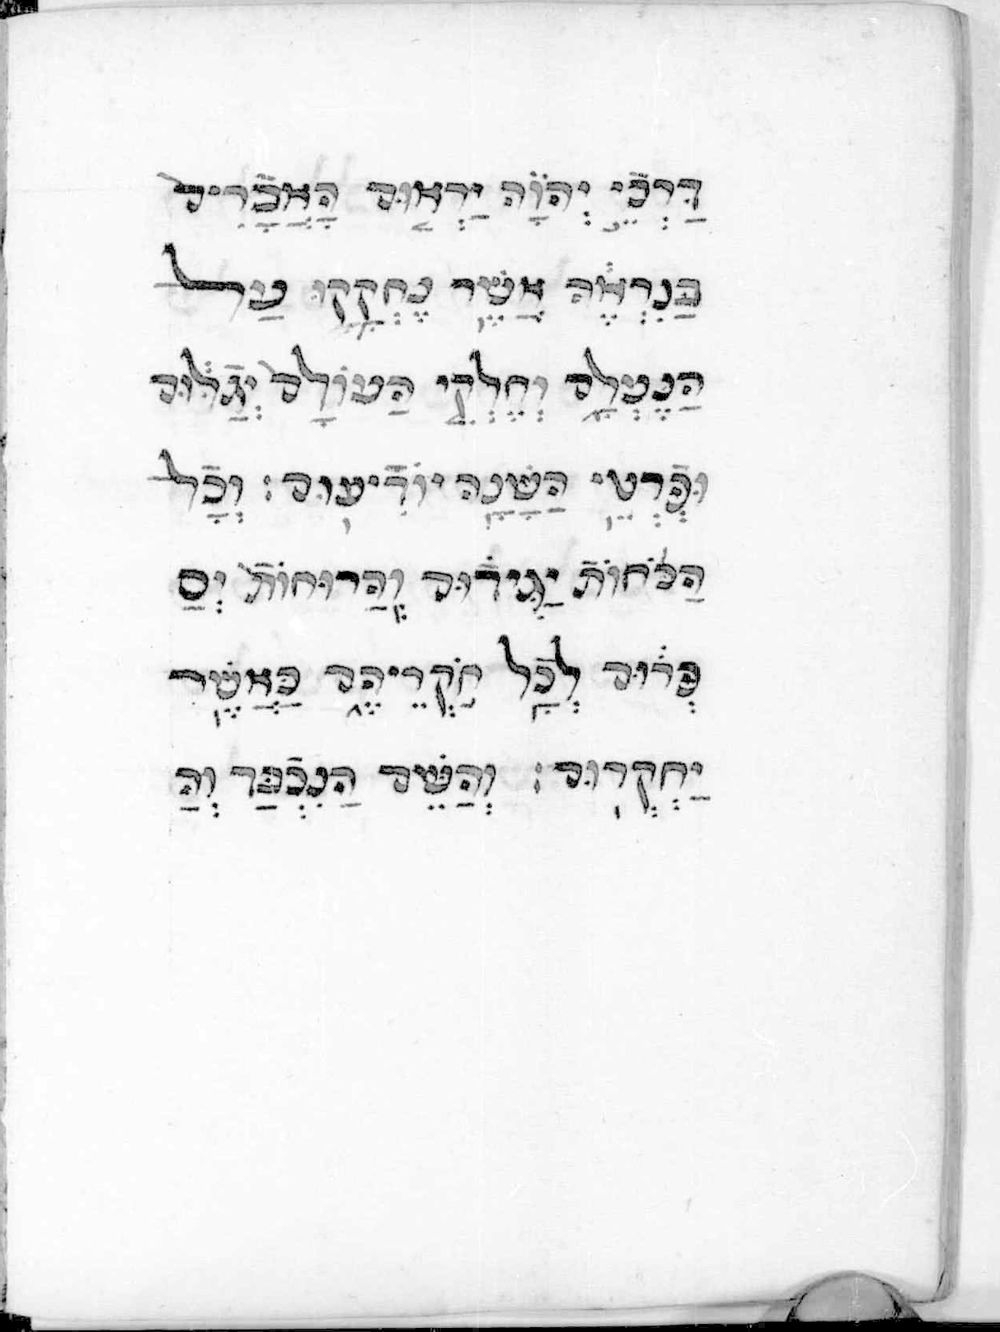 דַּרְכֵי יְהוָֹה יַרְאוּם הָאֲבָרִים
בַּנִרְאֶה אֲשֶׁר נֶחְקְקוּ עַל
הַנֶעְלָם וְחֶלְקֵי הַעוֹלָם יְגַלּוּם
וּפְרָטֵי הַשָּׁנָה יוֹדִיעוּם׃ וְכָל
הַכֹּחוֹת יַגִידוּם וְהַרוּחוֹת יְסַ
פְּרוּם לְכָל חֹקְרֵיהֶם כַּאֲשֶׁר
יַחְקְרוּם׃ וְהַשֵּׁם הַנִכְבַּד וְהַ